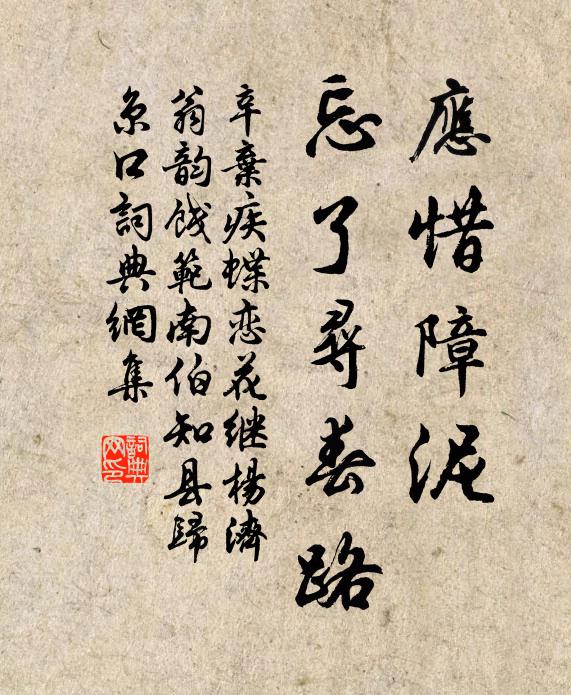 應惜障泥
忘了尋春路
辛棄疾蝶恋花继楊濟
翁韵餞範南伯知县歸
京口詞典網集
詞典
网印